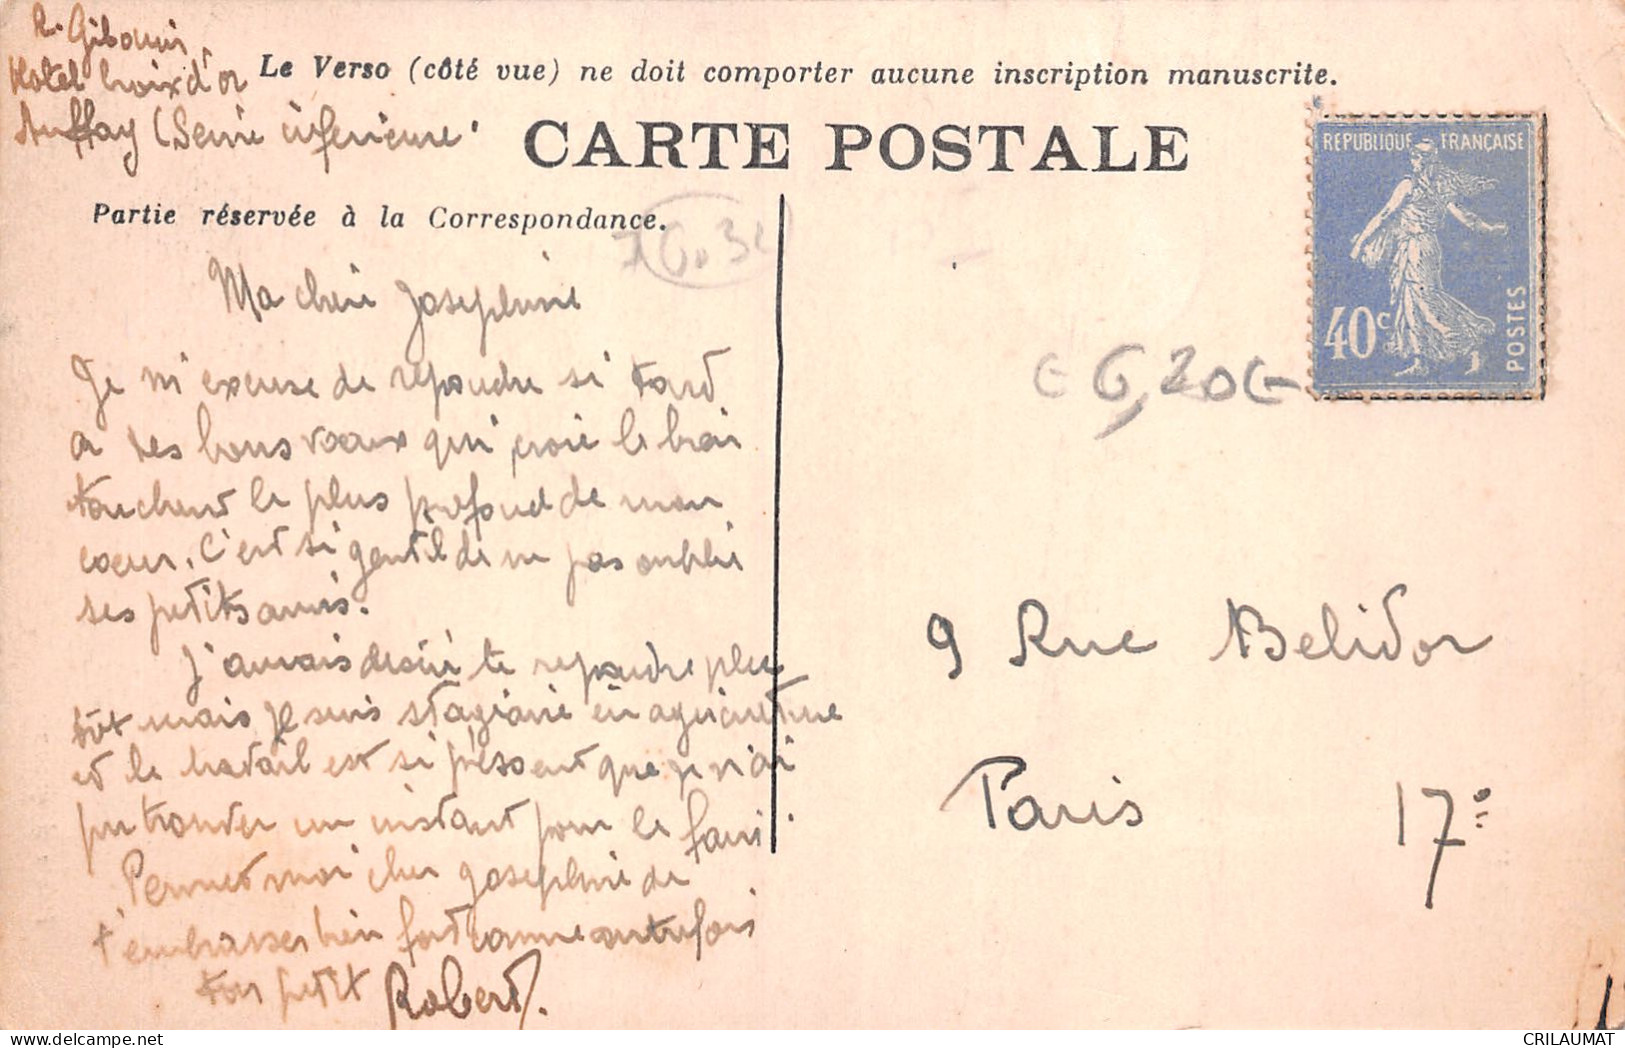 R. Gibouin
Hotel Croix d'or
Auffay (Seine inferieure.
Le Verso (côté vue) ne doit comporter aucune inscription manuscrite.
CARTE POSTALE
Partie réservée à la Correspondance.
REPUBLIQUE FRANÇAISE
40c
POSTES
Ma cheri Josephine
Je m'excuse de repondre si tard
a tes bons voeux qui croie le bien
touchent le plus profond de mon
coeur. C'est si gentil de ne pas oublié
ses petits amis.
J'aurais desiré te repondre plus
tôt mais je suis stagiaire en agriculture
et le travail est si pressent que je n'ai
pu trouver un instant pour le faire.
Permet moi cher Josephine de
t'embrasser bien fort comme autrefois
ton petit Robert.
6,20€
9 Rue Belidor
Paris 17e
CRILAUMAT